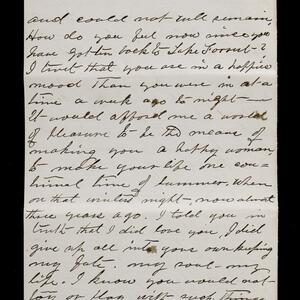 and could not well remain,
How do you feel now since you
have gotten back to Lake Forest-?
I trust that you are in a happier
mood than you were in at a
time a week ago to night-
It would afford me a world
of pleasure to be the means of
making you a happy woman,
to make your life one con-
tinual time of summer, when
on that winters night- now about
three years ago. I told you in
truth that I did love you, I did
give up all into your own keeping
my fate. my soul- my
life. I know you would not-
toy or play with such